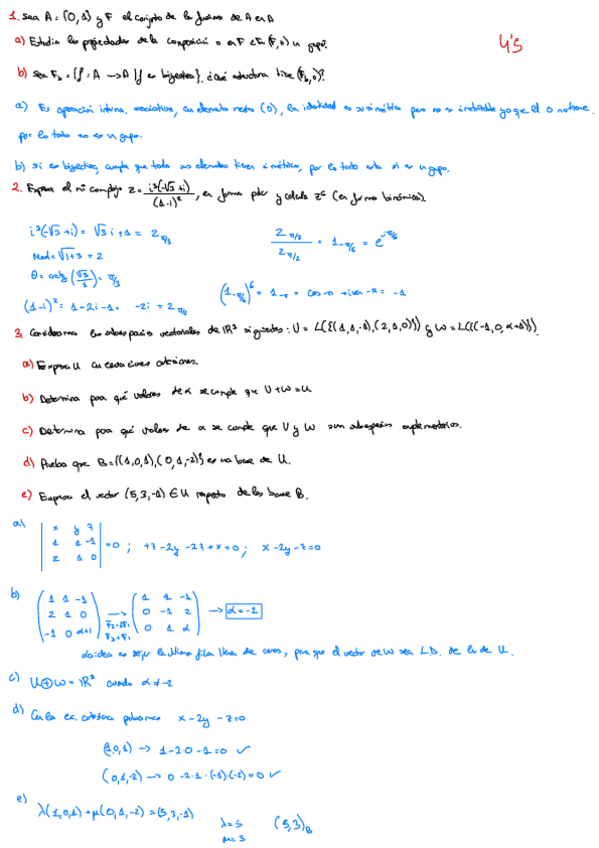 1. Sea A = {0,1} y F el conjunto de las funciones de A en A
4'5
a) Estudia las propiedades de la composición o en F ¿Es (F,o) un grupo?
b) Sea F_b = {f: A → A | f es biyectiva}. ¿Qué estructura tiene (F_b, o)?
a) Es operación interna, asociativa, con elemento neutro (0), la identidad es su simétrico pero no es invertible ya que el 0 no tiene,
por lo tanto no es un grupo.
b) si es biyectiva, cumple que todos sus elementos tienen simétrico, por lo tanto esta si es un grupo.
2. Expresa el nº complejo z = i³(-√3+i)/(1-i)², en forma polar y calcula z⁶ (en forma binómica).
i³(-√3+i) = √3 i + 1 = 2_{π/3}
2_{π/3} / 2_{π/2} = 1_{-π/6} = e^{-π/6}
Mod = √1+3 = 2
θ = arctg (√3/1) = π/3
(1_{-π/6})⁶ = 1_{-π} = cos -π + i sen -π = -1
(1-i)² = 1-2i-1 = -2i = 2
3. Consideramos los subespacios vectoriales de IR³ siguientes: U = L({(1,1,-1),(2,1,0)}) y W = L({(-1,0,α+1)}).
a) Expresa U en ecuaciones
b) Determina para qué valores de α se cumple que U+W=U
c) Determina para qué valores de α se cumple que U y W son subespacios suplementarios.
d) Prueba que B={(1,0,1),(0,1,-2)} es una base de U.
e) Expresa el vector (5,3,-1) ∈ U respecto de la base B.
a) | x y z ; 1 1 -1 ; 2 1 0 | = 0 ; +z -2y -2z + x = 0 ; x-2y-z=0
b) ( 1 1 -1 ; 2 1 0 ; -1 0 α+1 ) → F2-2F1 F3+F1 ( 1 1 -1 ; 0 -1 2 ; 0 1 α ) → α = -2
la idea es dejar la última fila llena de ceros, para que el vector de W sea L.D. de los de U.
c) U⊕W = IR³ cuando α ≠ -2
d) Con la ec. x-2y-z=0
(1,0,1) → 1-2·0-1=0 ✓
(0,1,-2) → 0-2·1·(-1)·(-2)=0 ✓
e) λ(1,0,1)+μ(0,1,-2)=(5,3,-1)
λ=5
μ=3
(5,3)_B